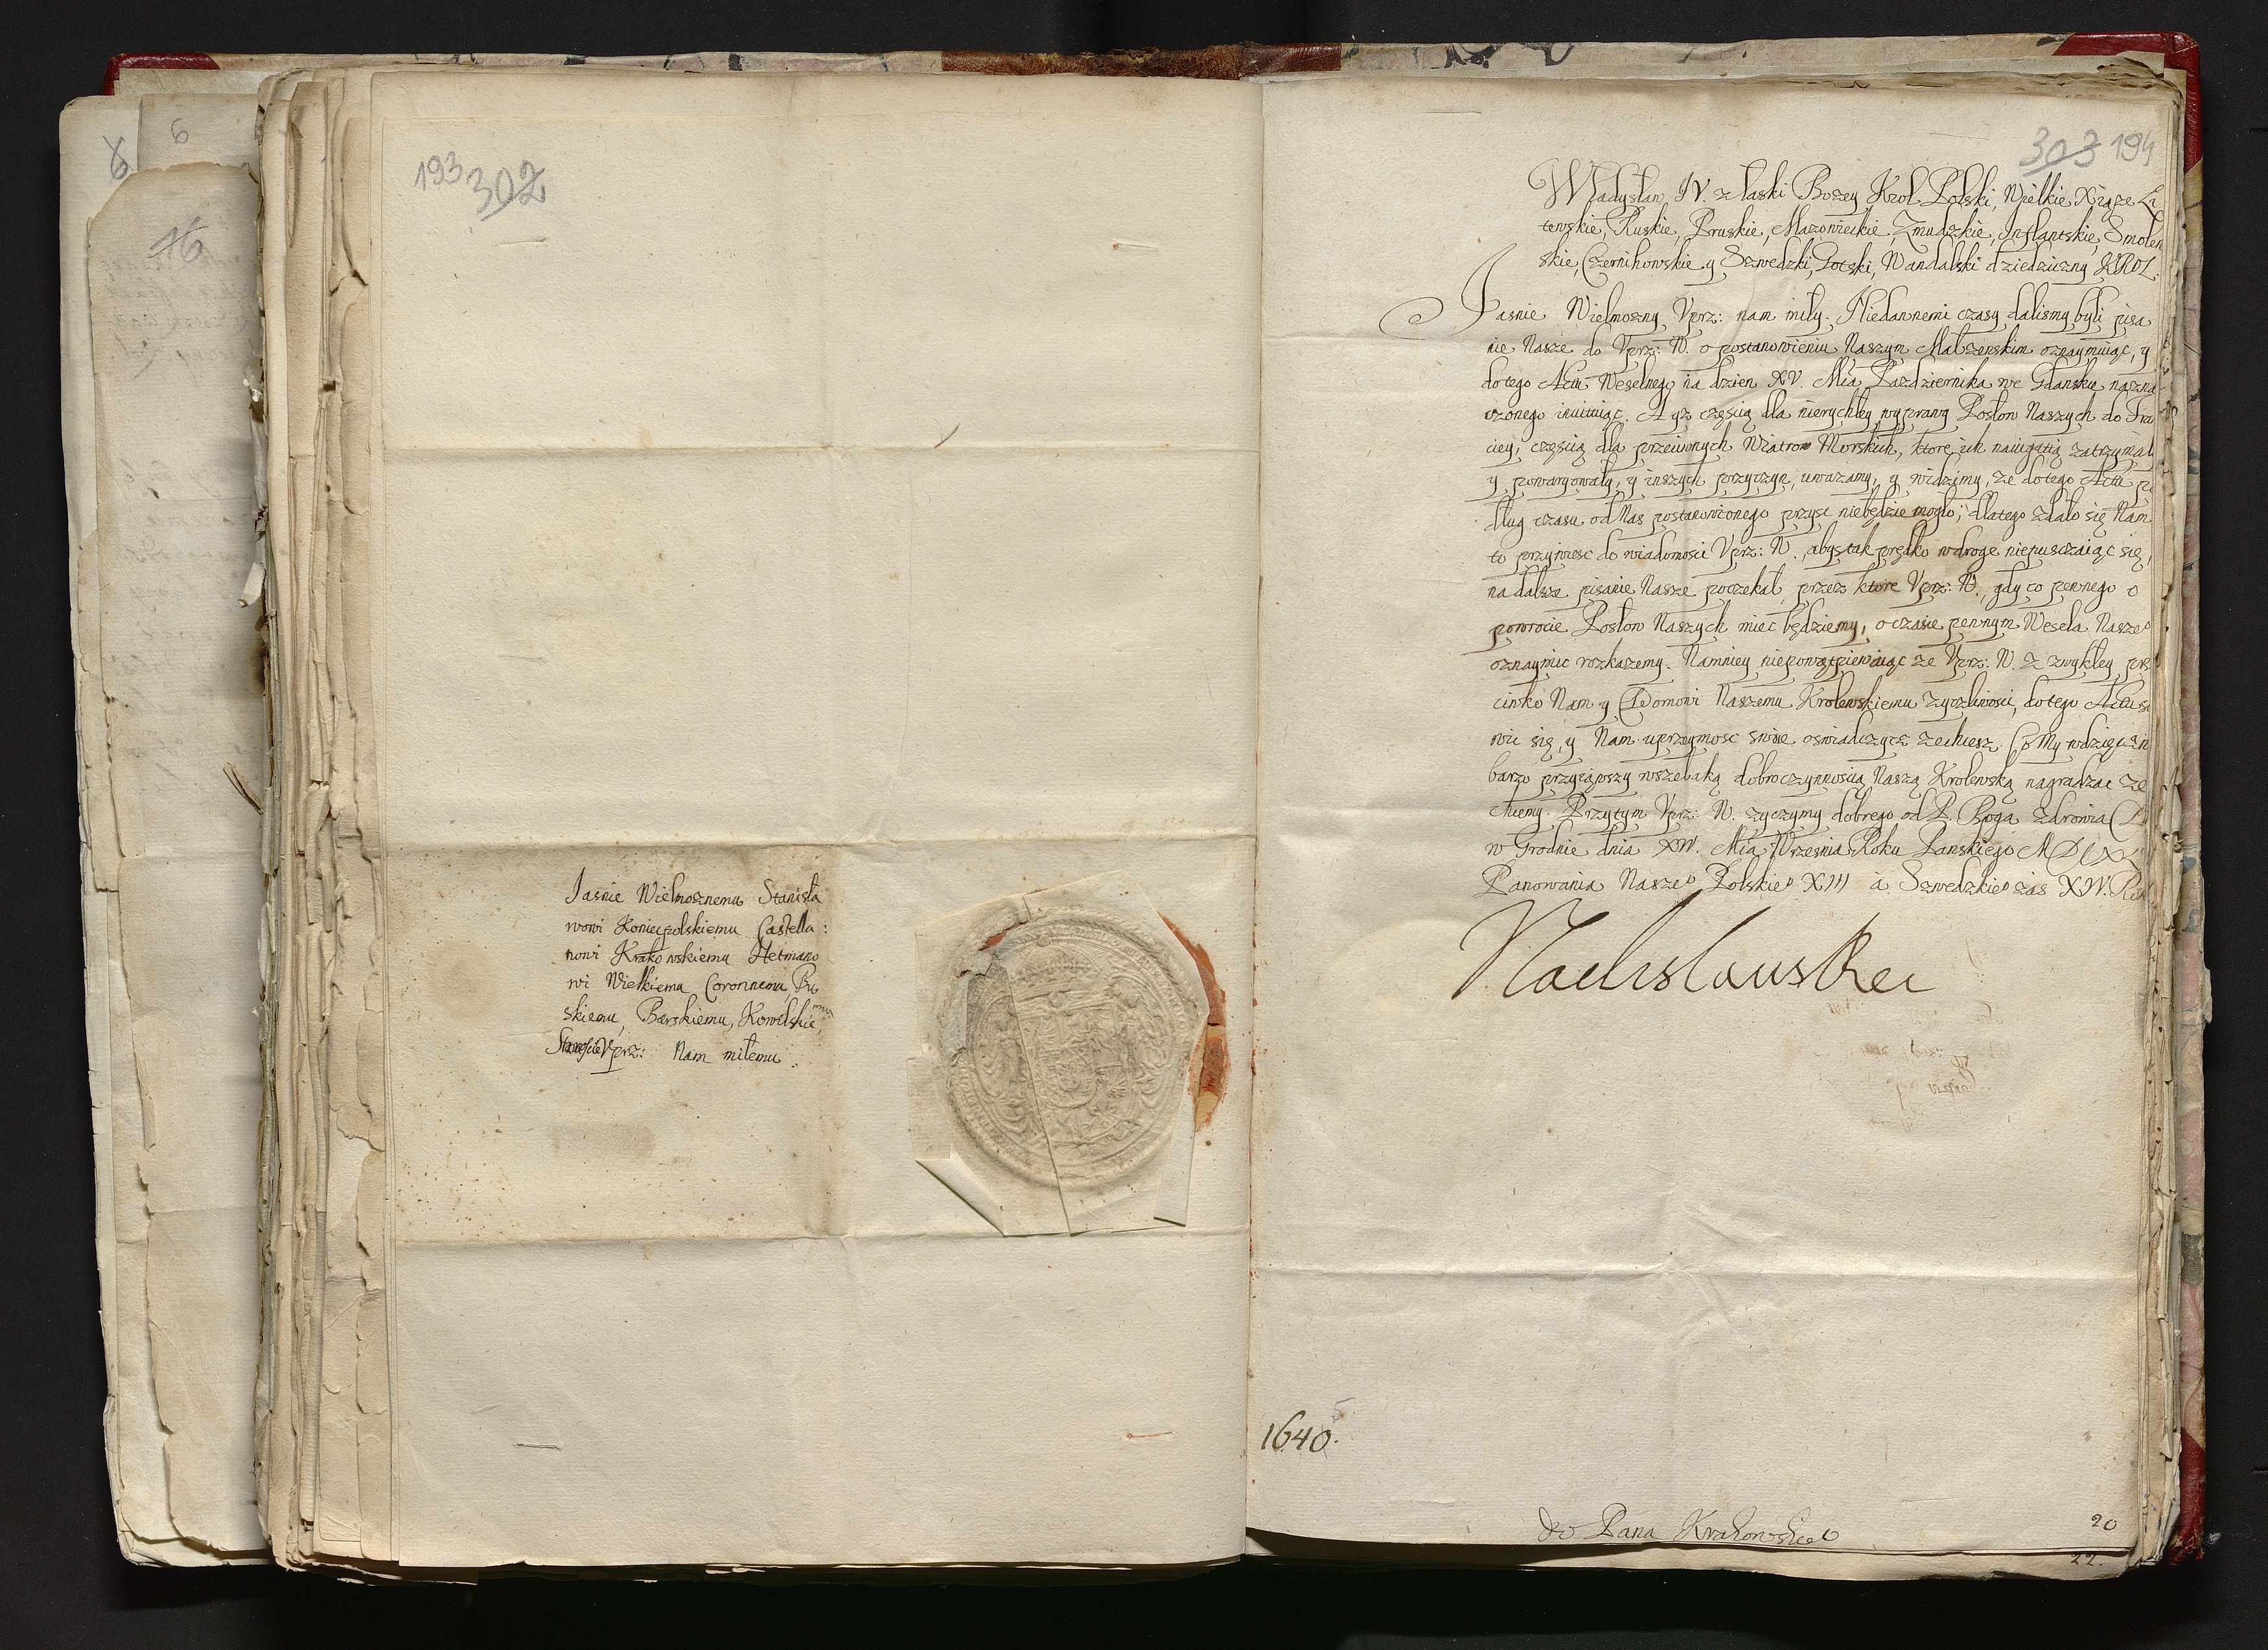 6
6
16
193 302
Jasnie Wielmoznemu Stanisła
wowi Koniecpolskiemu Castella:
nowi Krakowskiemu Hetmano
wi Wielkiemu Coronnemu Bu
skiemu, Barskiemu, Kowelskie mu
Staroscie Vprz: Nam miłemu.
303 194
Władysław IV. z łaski Bozey Krol Polski, Wielkie Xiąze Li
tewskie, Ruskie, Pruskie, Mazowieckie, Zmudzkie, Inflantskie, Smolen
skie, Czernihowskie y Szwedzki, Gotski, Wandalski dziedziczny KROL.
Jasnie Wielmozny Vprz: nam miły. Niedawnemi czasy dalismy byli pisa
nie Nasze do Vprz: W. o postanowieniu Naszym Małzenskim oznaymuiąc, y
do tego Actu Weselnego na dzien XV. Mca Pazdziernika we Gdansku nazna
czonego inuituiąc. A yz częscią dla nierychłey wyprawy Posłow Naszych do Fra
ciey, częscią dla przeciwnych Wiatrow Morskich, ktore ich nauigatią zatrzymał
y powaryowały, y inszych przyczyn, uwazamy, y widzimy, ze do tego Actu p
dług czasu od Nas postanowionego przysc niebędzie mogło; dlatego zdało się Nam
to przywiesc do wiadomosci Vprz: W., abys tak prędko w droge niepusczaiąc się,
na dalsze pisanie Nasze poczekał, przez ktore Vprz: W., gdy co pewnego o
powrocie Posłow Naszych miec będziemy, o czasie pewnym Wesela Naszeo
oznaymic rozkazemy. Namniey niepowątpiewaiąc ze Vprz: W. z zwykłey prz
ciwko Nam y Domowi Naszemu Krolewskiemu zyczliwosci, do tego Actu s
wic się, y Nam uprzeymosc swoie oswiadczyc zechcesz. Co My wdzięcżn
barzo przyiąwszy wszelaką dobroczynnoscią Naszą Krolewską nagradzac ze
chcemy. Przytym Vprz: W. zyczymy dobrego od P. Boga zdrowia
w Grodnie dnia XIV. Mca Wrzesnia Roku Panskiego MDCXL
Panowania Naszeo Polskieo XIII a Szwedzkieo zas XIV. Ro
Vladislaus Rex
5
1640.
do Pana Krakowskieo
20
22.